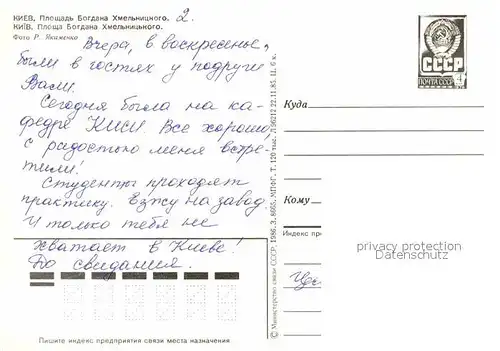 КИЕВ. Площадь Богдана Хмельницкого. 2.
КИЇВ. Площа Богдана Хмельницького.
Фото Р. Якименко
Вчера, в воскресенье,
были в гостях у подруги
Вали.
Сегодня была на ка-
федре КИСИ. Все хорошо,
с радостью меня встре-
тили!
Студенты проходят
практику. Езжу на завод.
И только тебя не
хватает в Киеве!
До свидания.
Пишите индекс предприятия связи места назначения
© Министерство связи СССР, 1986. З. 8665, МПФГ. Т. 120 тыс. Л 96212 22.11.85. Ц. 6 к.
СССР
ПОЧТА СССР
4
Куда
Кому
Индекс пр
privacy protection
Datenschutz